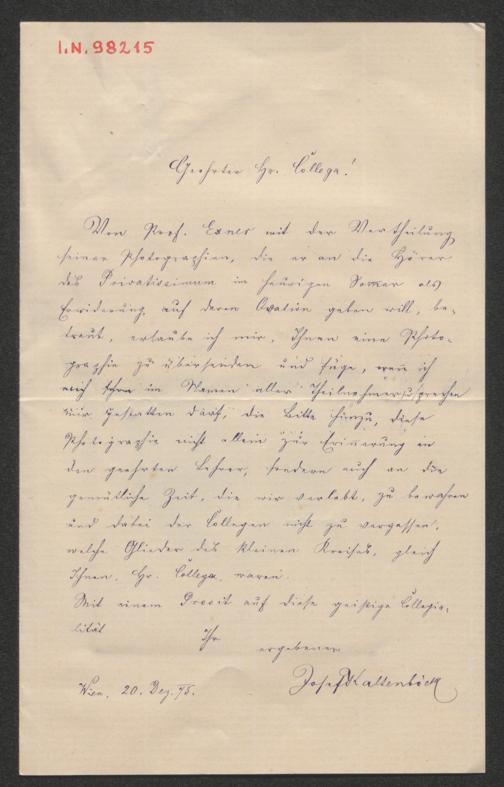 I.N. 98215
Geehrter Hr. College!
Von Prof. Exner mit der Vertheilung
seiner Photographien, die er an die Hörer
des Privatissimum im heurigen Sommer als
Erwiderung auf deren Ovation geben will, be-
traut, erlaube ich mir, Ihnen eine Photo-
graphie zu übersenden und füge, wenn ich
mich im Namen aller Theilnehmer zu sprechen
mir gestatten darf, die Bitte hinzu, diese
Photographie nicht allein zur Erinnerung an
den geehrten Lehrer, sondern auch an die
gemütliche Zeit, die wir verlebt, zu bewahren
und dabei der Collegen nicht zu vergessen,
welche Glieder des kleinen Kreises, gleich
Ihnen, Hr. College, waren.
Mit einem Prosit auf diese geistige Collegia-
lität
Ihr
ergebener
Josef Kaltenböck
Wien, 20. Dez. 95.